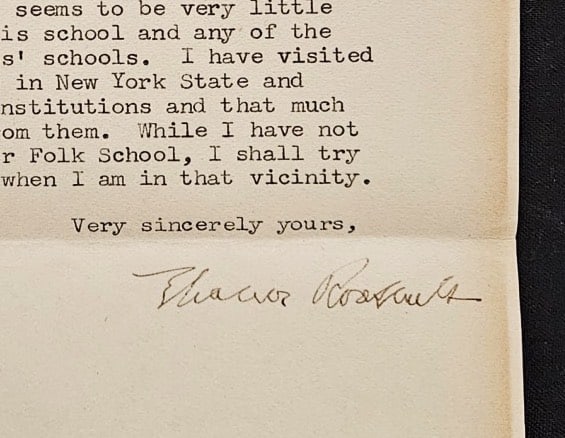 seems to be very little
is school and any of the
s' schools. I have visited
in New York State and
nstitutions and that much
om them. While I have not
r Folk School, I shall try
when I am in that vicinity.
Very sincerely yours,
Eleanor Roosevelt